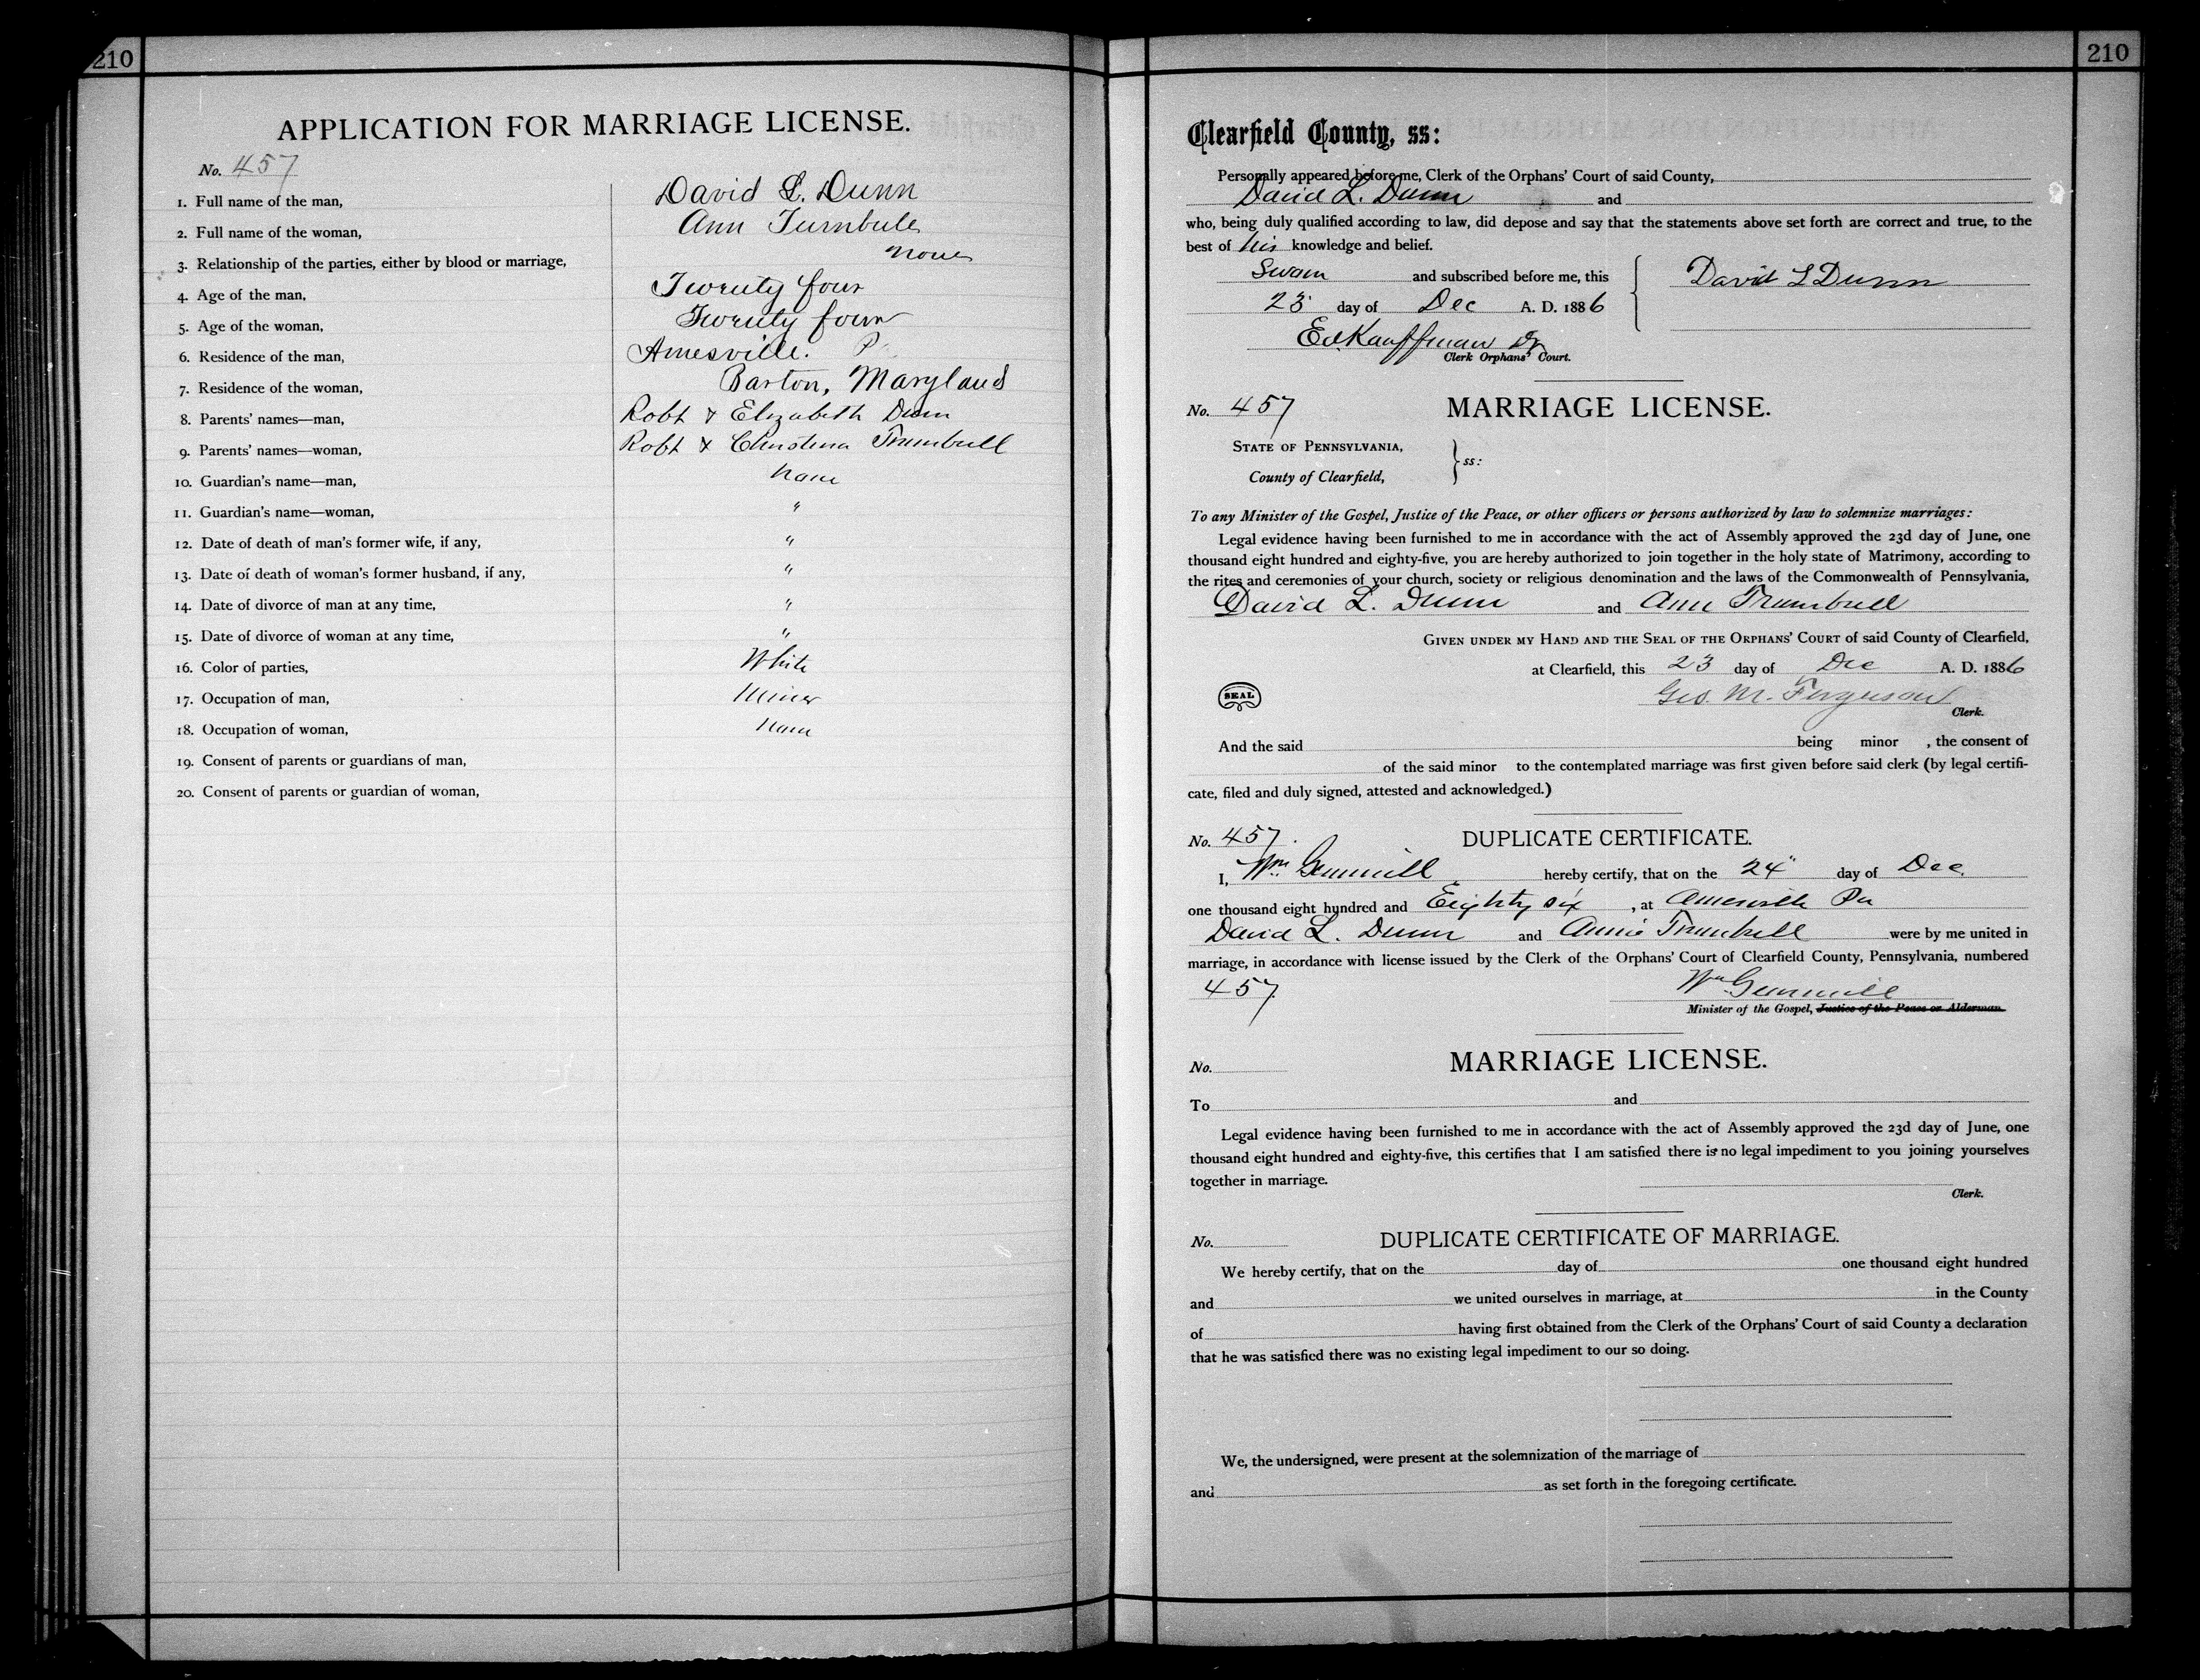 210
APPLICATION FOR MARRIAGE LICENSE.
No. 457
1. Full name of the man, David L. Dunn
2. Full name of the woman, Ann Turnbull
3. Relationship of the parties, either by blood or marriage, none
4. Age of the man, Twenty four
5. Age of the woman, Twenty four
6. Residence of the man, Amesville. Pa
7. Residence of the woman, Barton, Maryland
8. Parents' names—man, Robt & Elizabeth Dunn
9. Parents' names—woman, Robt & Christena Trumbull
10. Guardian's name—man, None
11. Guardian's name—woman, "
12. Date of death of man's former wife, if any, "
13. Date of death of woman's former husband, if any, "
14. Date of divorce of man at any time, "
15. Date of divorce of woman at any time, "
16. Color of parties, White
17. Occupation of man, Miner
18. Occupation of woman, None
19. Consent of parents or guardians of man,
20. Consent of parents or guardian of woman,
210
Clearfield County, ss:
Personally appeared before me, Clerk of the Orphans' Court of said County,
David L. Dunn and
who, being duly qualified according to law, did depose and say that the statements above set forth are correct and true, to the
best of his knowledge and belief.
Sworn and subscribed before me, this
David L Dunn
23 day of Dec A. D. 1886
Ed. Kauffman Dy
Clerk Orphans' Court.
No. 457 MARRIAGE LICENSE.
STATE OF PENNSYLVANIA,
ss:
County of Clearfield,
To any Minister of the Gospel, Justice of the Peace, or other officers or persons authorized by law to solemnize marriages:
Legal evidence having been furnished to me in accordance with the act of Assembly approved the 23d day of June, one
thousand eight hundred and eighty-five, you are hereby authorized to join together in the holy state of Matrimony, according to
the rites and ceremonies of your church, society or religious denomination and the laws of the Commonwealth of Pennsylvania,
David L. Dunn and Ann Trumbull
GIVEN UNDER MY HAND AND THE SEAL OF THE ORPHANS' COURT of said County of Clearfield,
at Clearfield, this 23 day of Dec A. D. 1886
SEAL
Geo. M. Ferguson
Clerk.
And the said being minor , the consent of
of the said minor to the contemplated marriage was first given before said clerk (by legal certifi-
cate, filed and duly signed, attested and acknowledged.)
No. 457. DUPLICATE CERTIFICATE.
I, Wm Gemmill hereby certify, that on the 24" day of Dec.
one thousand eight hundred and Eighty six , at Amesville Pa
David L. Dunn and Annie Trumbull were by me united in
marriage, in accordance with license issued by the Clerk of the Orphans' Court of Clearfield County, Pennsylvania, numbered
457. Wm Gemmill
Minister of the Gospel, Justice of the Peace or Alderman.
No. MARRIAGE LICENSE.
To and
Legal evidence having been furnished to me in accordance with the act of Assembly approved the 23d day of June, one
thousand eight hundred and eighty-five, this certifies that I am satisfied there is no legal impediment to you joining yourselves
together in marriage.
Clerk.
No. DUPLICATE CERTIFICATE OF MARRIAGE.
We hereby certify, that on the day of one thousand eight hundred
and we united ourselves in marriage, at in the County
of having first obtained from the Clerk of the Orphans' Court of said County a declaration
that he was satisfied there was no existing legal impediment to our so doing.
We, the undersigned, were present at the solemnization of the marriage of
and as set forth in the foregoing certificate.